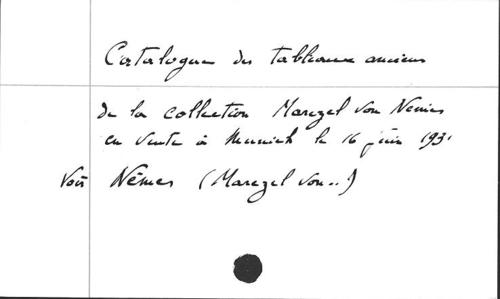 Catalogue des tableaux anciens
de la collection Marczel von Nemes
en vente à Munich le 16 juin 1931
Voir Némes (Marczel von..)